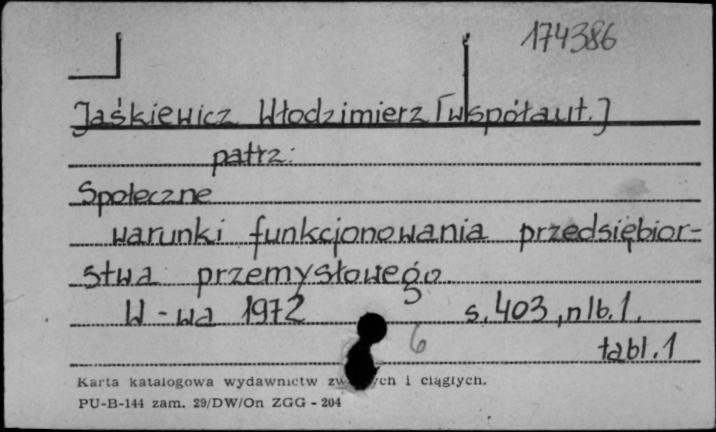 174386
Jaśkiewicz Włodzimierz [współaut.]
patrz:
Społeczne
warunki funkcjonowania przedsiębior-
stwa przemysłowego.
W-wa 1972 s. 403, nlb. 1.
6 tabl. 1
Karta katalogowa wydawnictw i ciągłych.
PU-B-144 zam. 29/DW/On ZGG - 204